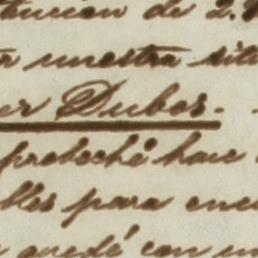 tencion de 2.
r nuestra situ
er Dubos.
probeché hace
bles para encu
quedé con un